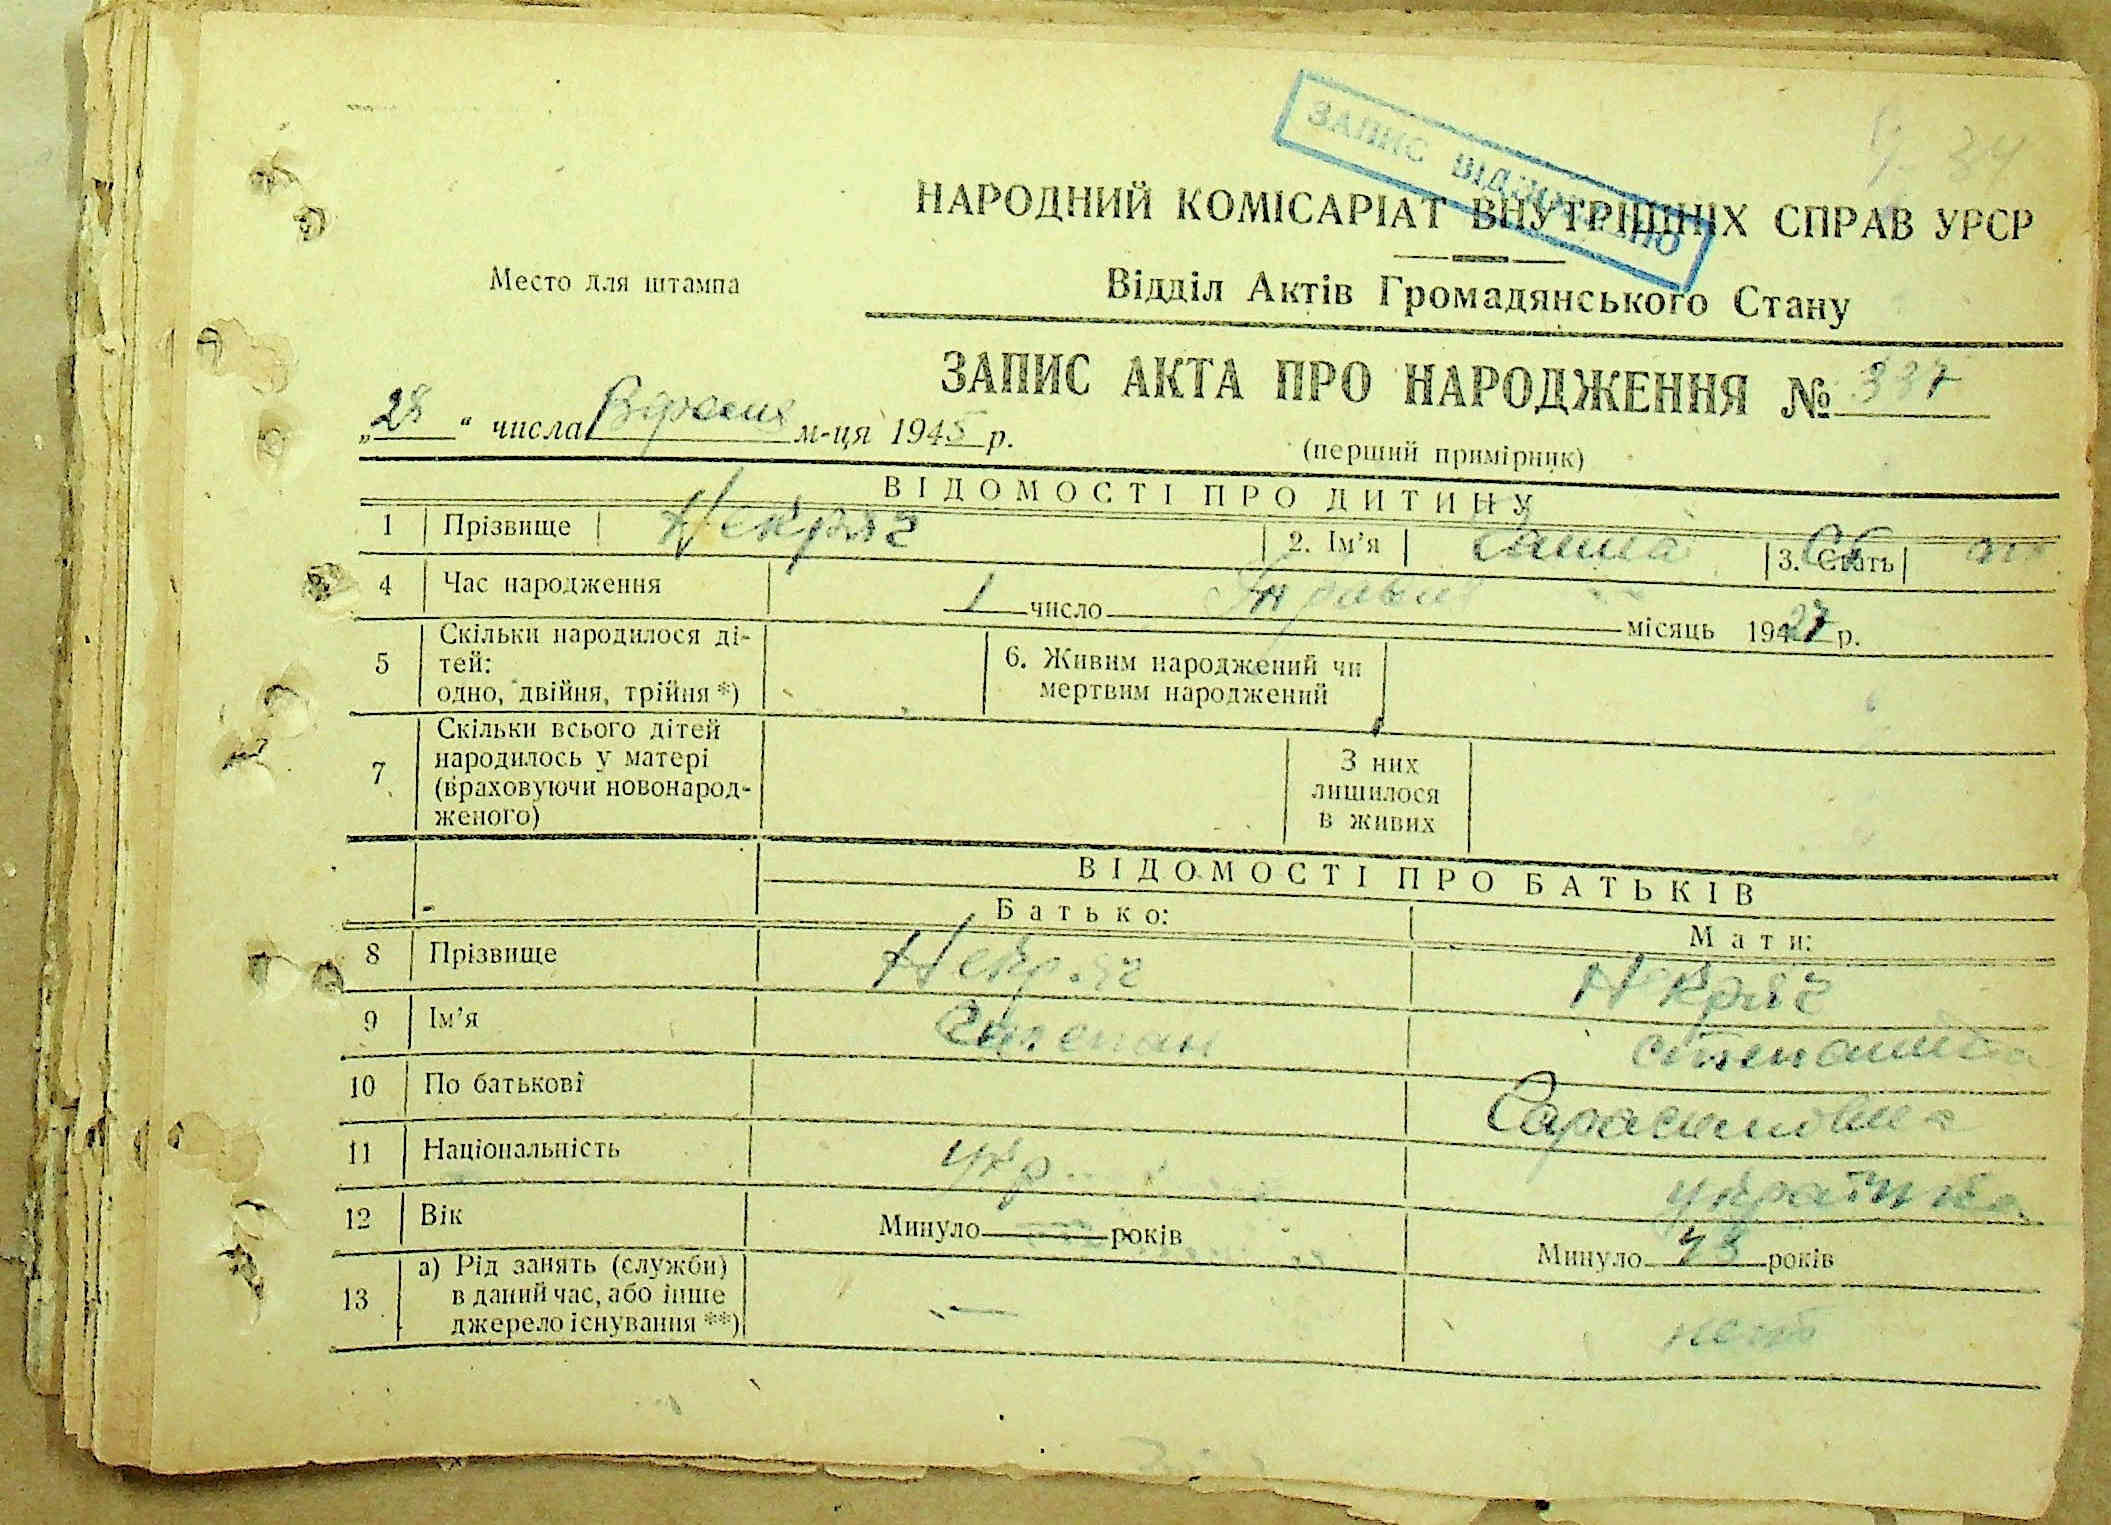 34
ЗАПИС ВІДНОВЛЕНО
НАРОДНИЙ КОМІСАРІАТ ВНУТРІШНІХ СПРАВ УРСР
Место для штампа
Відділ Актів Громадянського Стану
ЗАПИС АКТА ПРО НАРОДЖЕННЯ № 337
„28“ числа Вересня м-ця 1945 р.
(перший примірник)
ВІДОМОСТІ ПРО ДИТИНУ
1 Прізвище Некряч 2. Ім’я 3. Стать
4 Час народження 1 число місяць 1927 р.
5 Скільки народилося ді-
тей:
одно, двійня, трійня *)
6. Живим народжений чи
мертвим народжений
7 Скільки всього дітей
народилось у матері
(враховуючи новонарод-
женого)
З них
лишилося
в живих
ВІДОМОСТІ ПРО БАТЬКІВ
Батько: Мати:
8 Прізвище Некряч Некряч
9 Ім’я Степан Степанида
10 По батькові
11 Національність укр українка
12 Вік Минуло років Минуло 43 років
13 а) Рід занять (служби)
в даний час, або інше
джерело існування **)
—